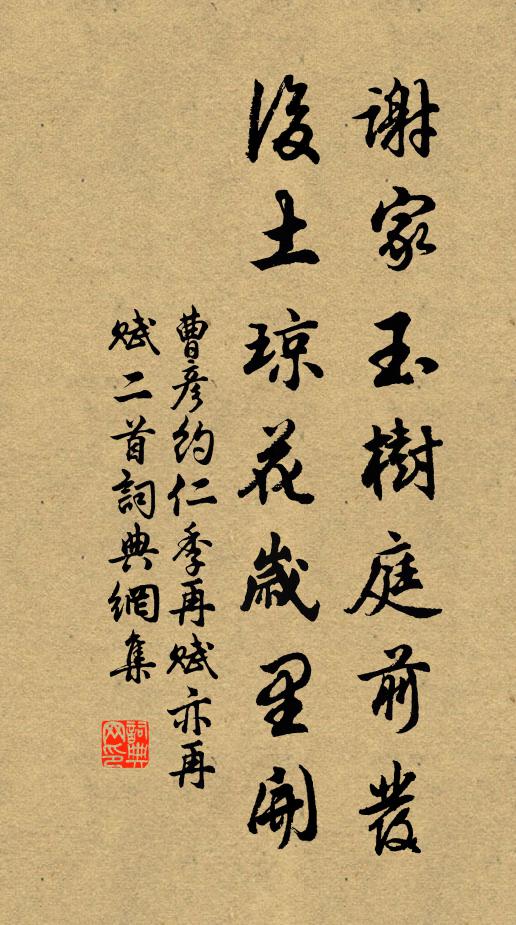 謝家玉樹庭前發
後土琼花歲里開
曹彦約仁季再賦亦再
賦二首詞典網集
詞典
网印